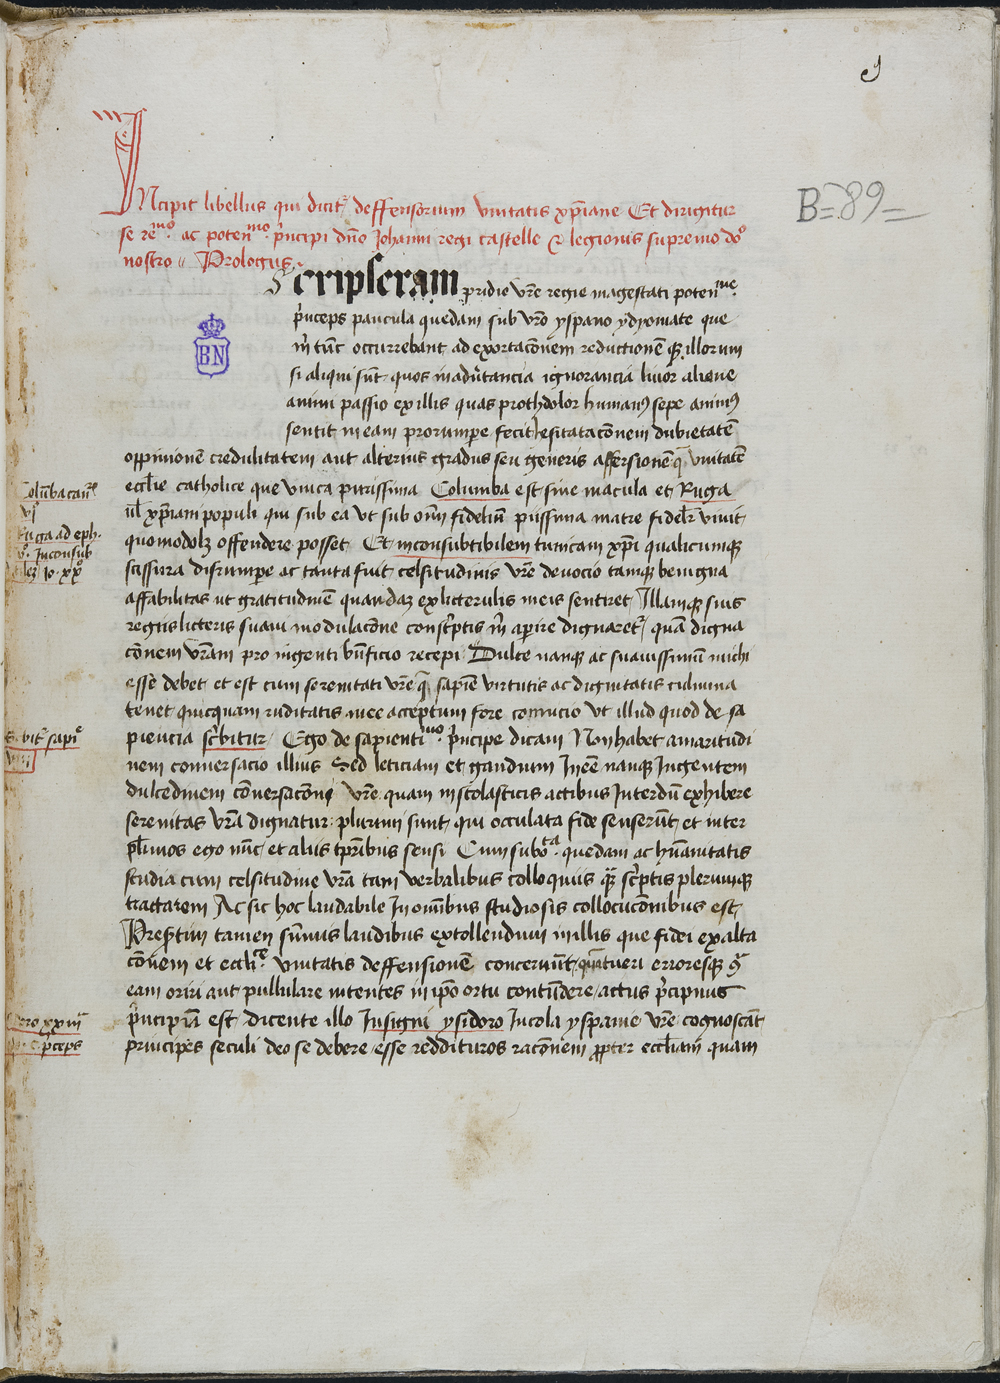 9
B=89=
INcipit libellus qui dicitᷣ deffensorium vnitatis xp̄iane Et dirigitur
se rēmo. ac potenmo. p̄ncipi dn̄o Johanni regi castelle & legionis supremo dō
nostro Prologus.
Scripseram pridie vr̄e regie magestati potenme.
p̄nceps paucula quedam sub vr̄o yspano ydyomate que
m̄ tūc occurrebant ad exortacōnem reductionē qȝ illorum
si aliqui sūt quos inadūtancia ignorancia liuor aliaue
animi passio ex illis quas prothdolor humanꝰ sepe animꝰ
sentit in eam prorumpere fecit hesitatacōnem dubietatē
oppinionē credulitatem aut alterius gradus seu generis assersionē q̄ vnitatē
eccl̄ie catholice que vnica purissima Columba est sine macula et Ruga
ul̄ xp̄iam populi qui sub ea vt sub om̄i fideliū piissima matre fidelr̄ viuit
quomodolȝ offendere posset Et inconsubtibilem tunicam xp̄i qualicumqȝ
scissura disrumꝑe ac tanta fuit celsitudinis vr̄e deuocio tamqȝ benigna
affabilitas ut gratitudinē quandaȝ ex litterulis meis sentiret Illamqȝ suis
regiis litteris suaui modulacōne consc̄ptis m̄ aꝑire dignaretᷣ quā digna
cōnem vr̄am pro ingenti bn̄ficio recepi Dulce nanqȝ ac suauissimū michi
esse debet et est cum serenitati vr̄e q̄ sapiē virtutis ac dignitatis culmina
tenet quicquam ruditatis mee acceptum fore conuicio vt illud quod de sa
piencia sc̄bitur Ego de sapientimo. p̄ncipe dicam Non habet amaritudi
nem conuersacio illius Sed leticiam et gaudium In eē nanqȝ Ingentem
dulcedinem cōnersacōnī vr̄e quam in scolasticis actibus Interdū exhibere
serenitas vr̄a dignatur plurimi sunt qui occulata fide senserūt et inter
pl̄imos ego nūc et aliis tp̄ribus sensi Cum subōta. quedam ac hūanitatis
studia cum celsitudine vr̄a tam verbalibus colloquiis qȝ sc̄ptis plerumqȝ
tractarem Ac sic hoc laudabile In om̄ibus studiosis collocucōnibus est
Presertim tamen sūmis laudibus extollendum in illis que fidei exalta
cōnem et eccl̄ie vnitatis deffensionē concernūt tueri erroresqȝ 9̄
eam oriri aut pullulare nitentes in ip̄o ortu contūdere actus p̄cipuus
p̄ncipū est dicente illo Insigni ysidoro Incola yspanie vr̄e cognoscāt
principes seculi deo se debere esse reddituros racōnem ꝓpter eccl̄iam quam
Colūba can̄t
vjo
Ruga ad eph.
vo. Inconsub
ilez Io. xxo
bitᷣ sapīe
viii
oro xxiii
p̄ceps
BN